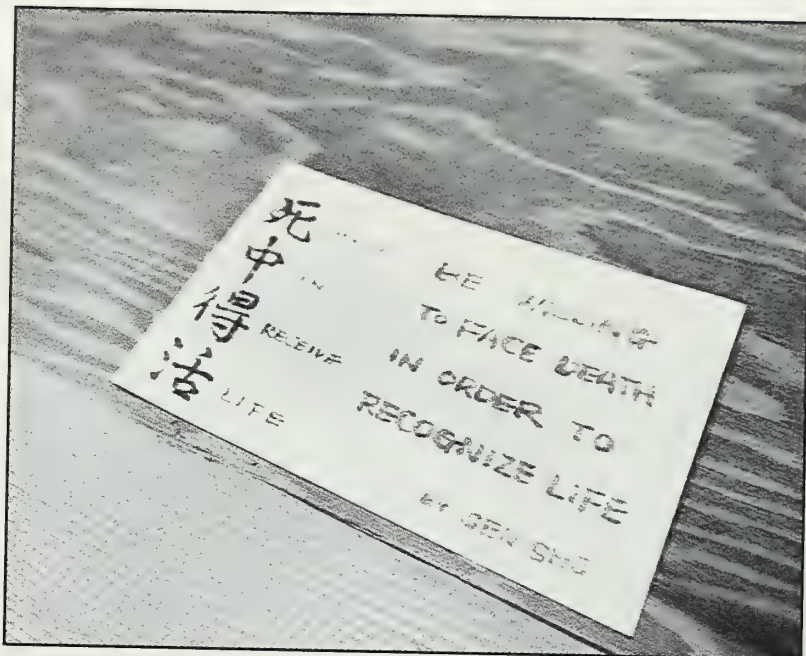 死
中 IN
得 RECEIVE
活 LIFE
BE WILLING
TO FACE DEATH
IN ORDER TO
RECOGNIZE LIFE
BY GEN SHO